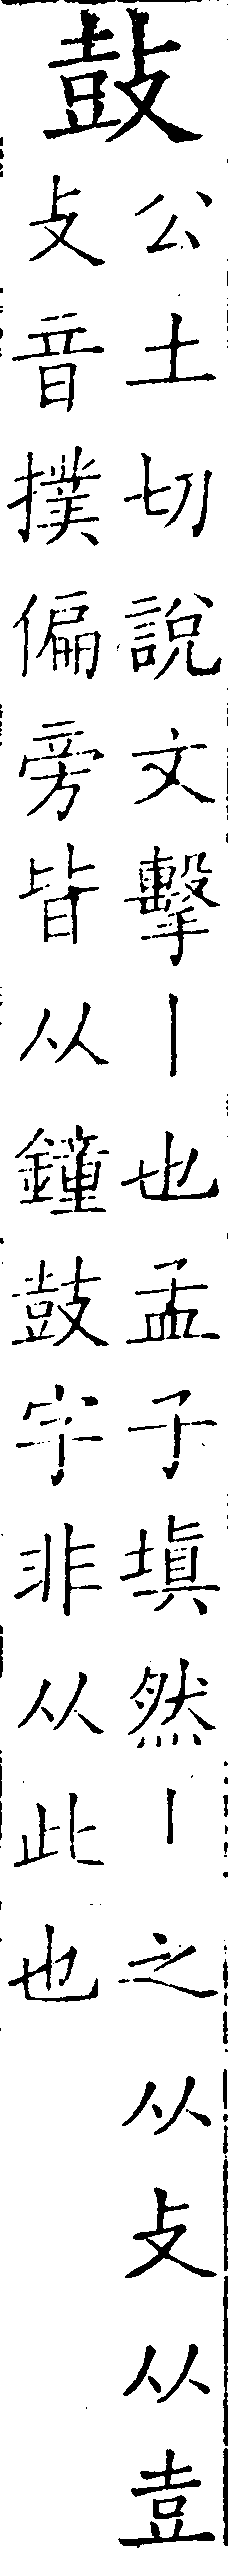 鼔
公土切說文擊丨也孟子塡然丨之从攴从壴
攴音撲偏旁皆从鐘鼓字非从此也